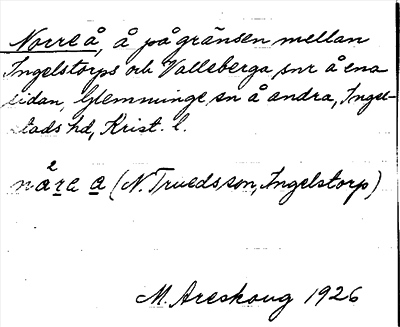 Norreå, å på gränsen mellan
Ingelstorps och Valleberga snr å ena
sidan, Glemminge sn å andra, Ingel-
stads hd, Krist. l.
nåra a (N. Truedsson, Ingelstorp)
M. Areskoug 1926